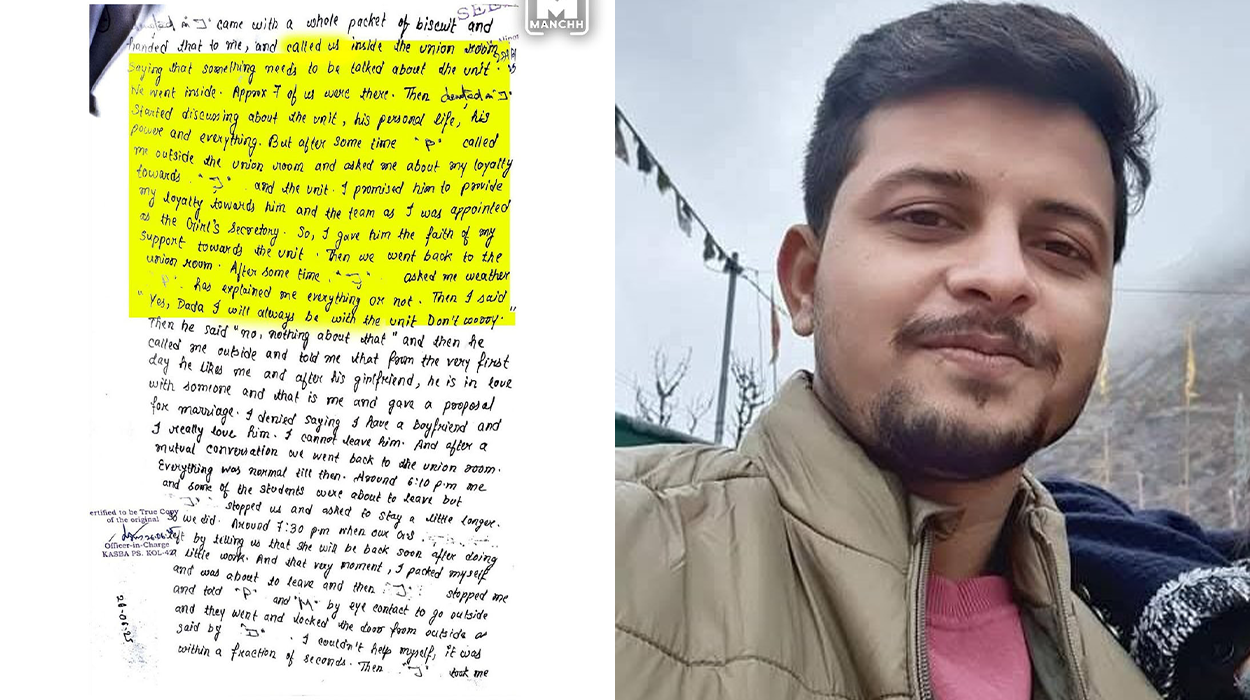 SEE
MANCHH
came with a whole packet of biscuit and
handed that to me, and called us inside the union room
saying that something needs to be talked about the unit. so
we went inside. Approx 7 of us were there. Then
started discussing about the unit, his personal life, his
power and everything. But after some time "P" called
me outside the union room and asked me about my loyalty
towards "J" and the unit. I promised him to provide
my loyalty towards him and the team as I was appointed
as the Girl's Secretary. So, I gave him the faith of my
support towards the unit. Then we went back to the
union room. After some time "J" asked me weather
"P" has explained me everything or not. Then I said
"Yes, Dada I will always be with the unit Don't worry."
Then he said "no, nothing about that" and then he
called me outside and told me that from the very first
day he likes me and after his girlfriend, he is in love
with someone and that is me and gave a proposal
for marriage. I denied saying I have a boyfriend and
I really love him. I cannot leave him. And after a
mutual conversation we went back to the union room.
Everything was normal till then. Around 6:10 p.m me
and some of the students were about to leave but
"J" stopped us and asked to stay a little longer.
so we did. Around 7:30 pm when our
left by telling us that she will be back soon after doing
a little work. And that very moment, I packed myself
and was about to leave and then "J" stopped me
and told "P" and "M" by eye contact to go outside
and they went and locked the door from outside as
said by "J". I couldn't help myself, it was
within a fraction of seconds. Then "J" took me
ertified to be True Copy
of the original
Officer-in-Charge
KASBA PS. KOL-42
28-06-25